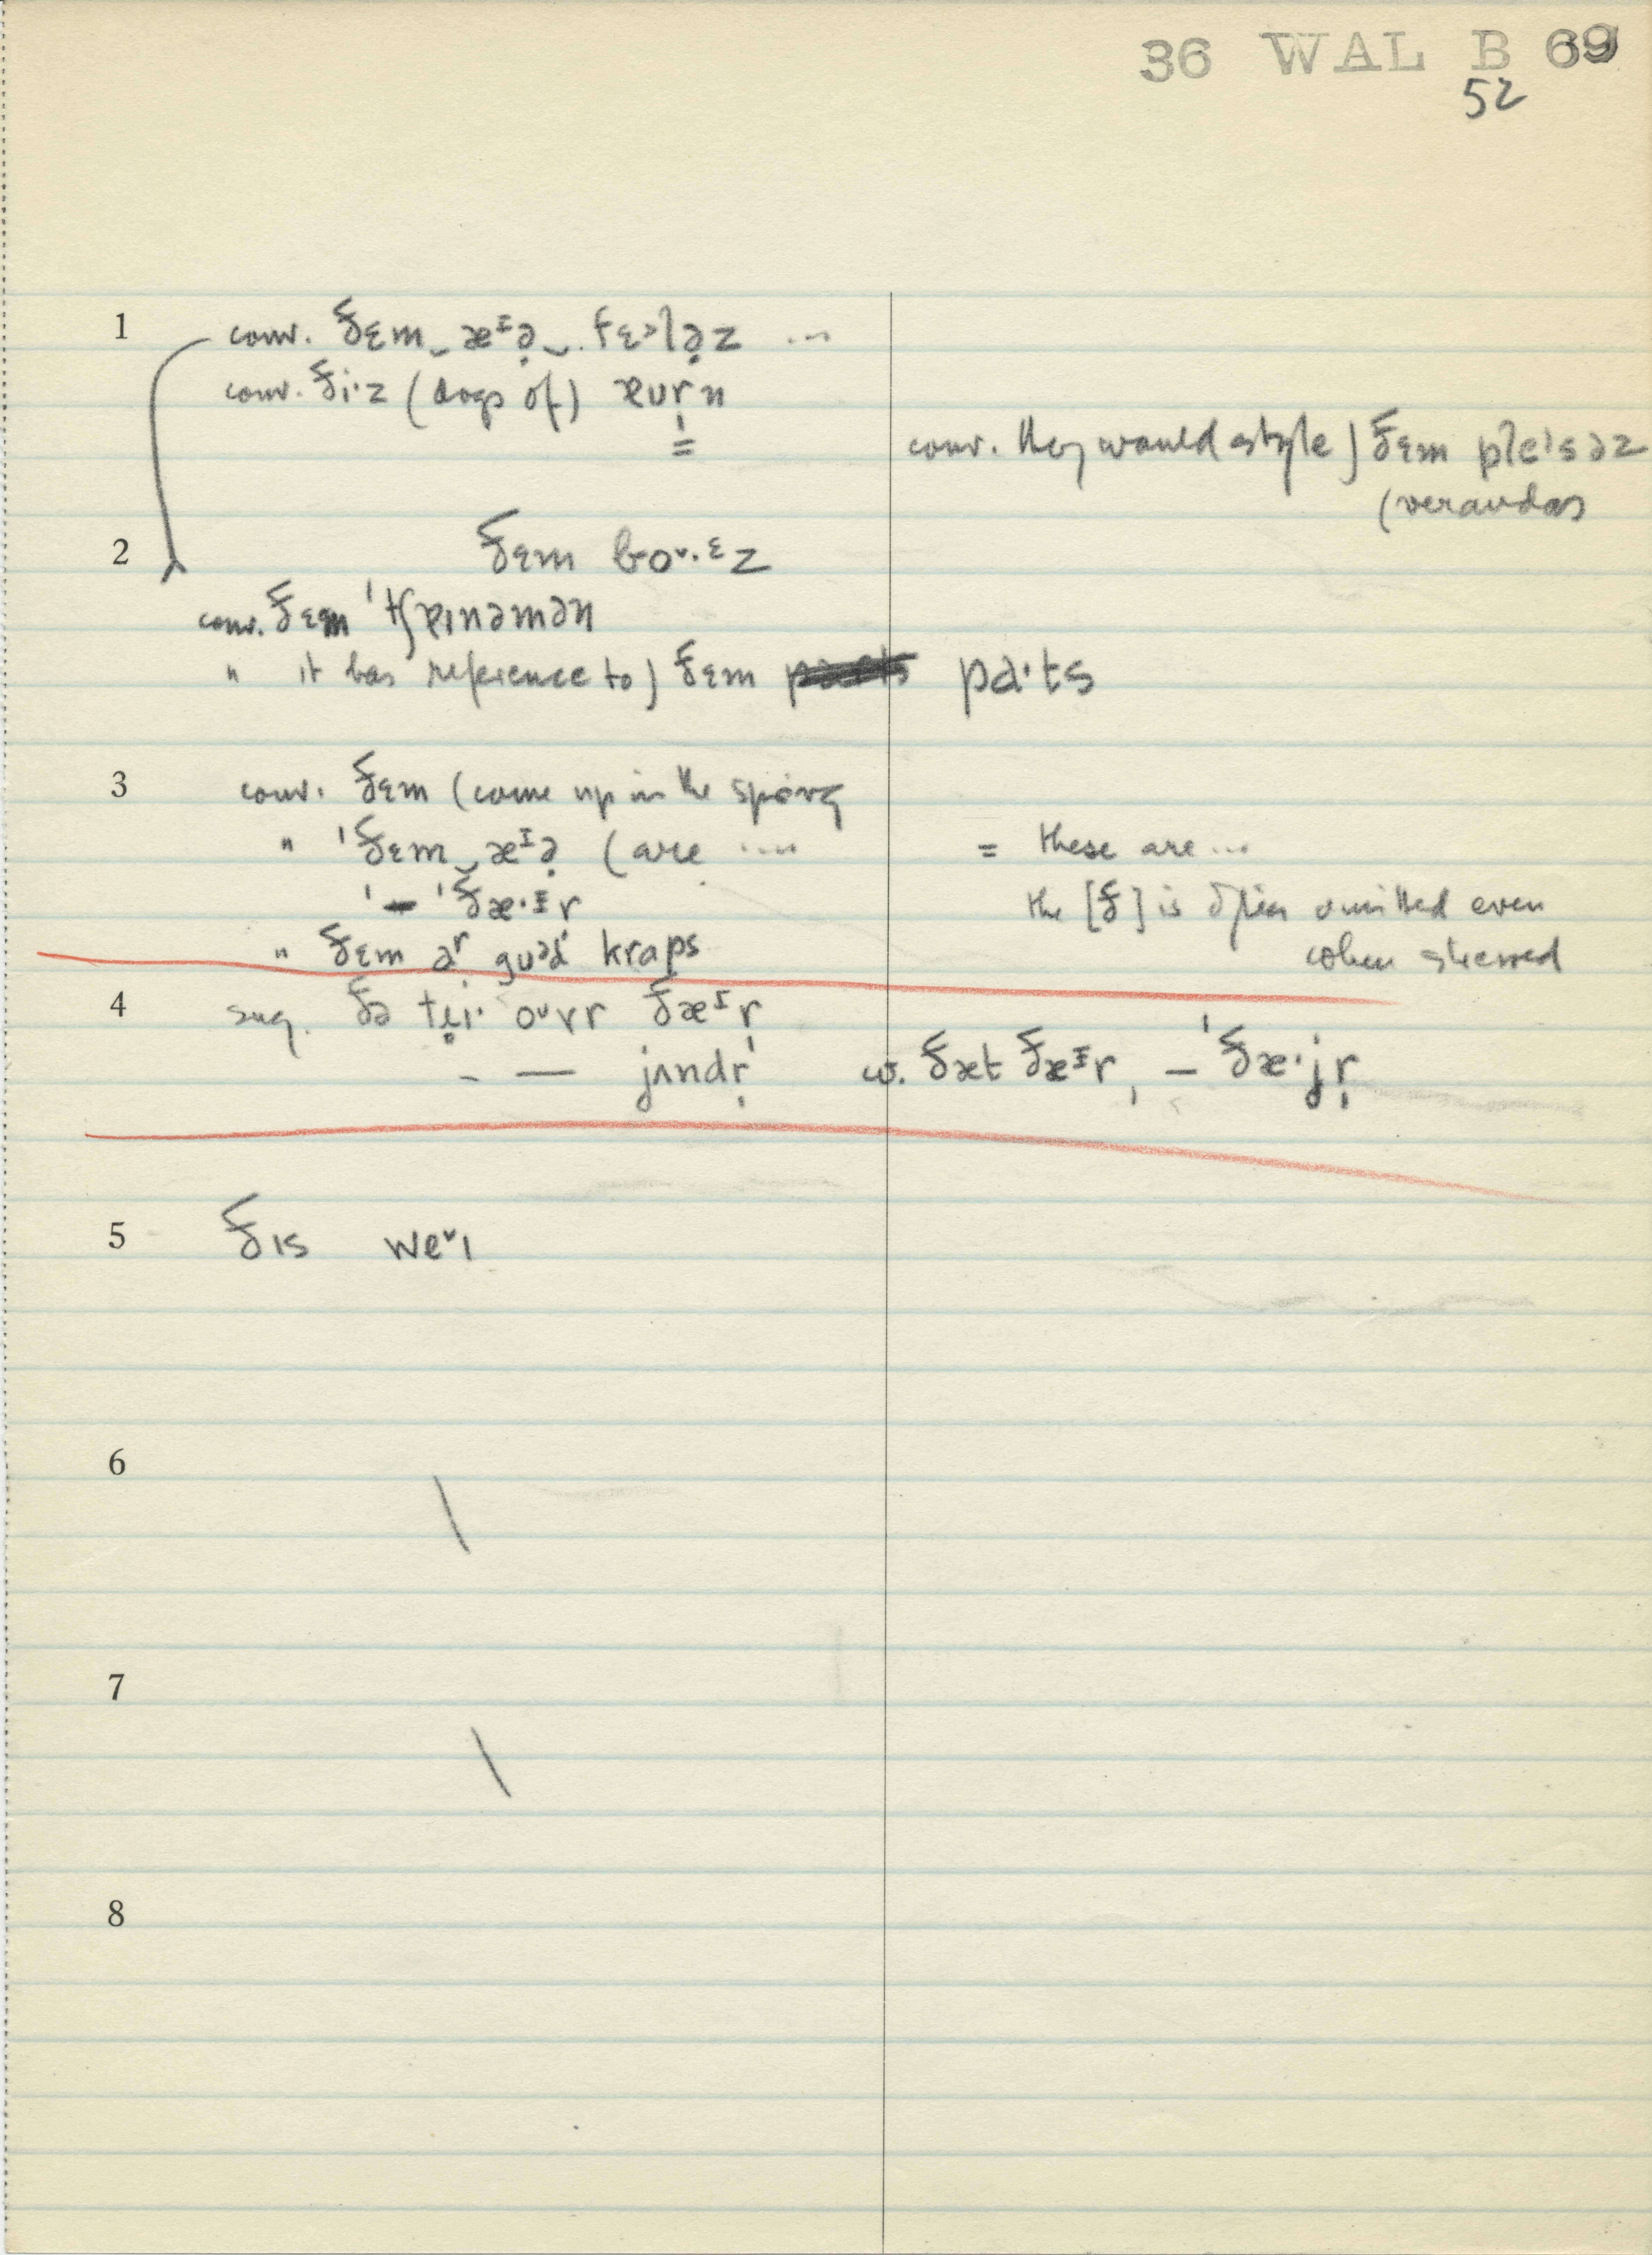 36 WAL B 69
52
1 conv. ðɛm‿æᴵə̣‿. fɛ˃lə̣z ...
conv. ði·z (dogs of) ɐʊr̩n
=
conv. they would style) ðɛm ple'səz
(verandas
2 ðɛm bo˅·ᵋz
conv. ðɛm 'tʃɐɪnəmən
" it has reference to) ðɛm pa·ts
3 conv. ðɛm (come up in the spring
" 'ðɛm‿æᴵə̣ (are .... = these are ...
'– 'ðæ·ᴵr the [ð] is often omitted even
" ðɛm əʳ guəd kraps when stressed
4 sug. ðə tu̜ɪ· oᵘvr ðæᴵr̩
– — jʌndr̩ w. ðæt ðæᴵr̩ – 'ðæ·jr̩
5 ðɪs we˅ɪ
6 \
7 \
8